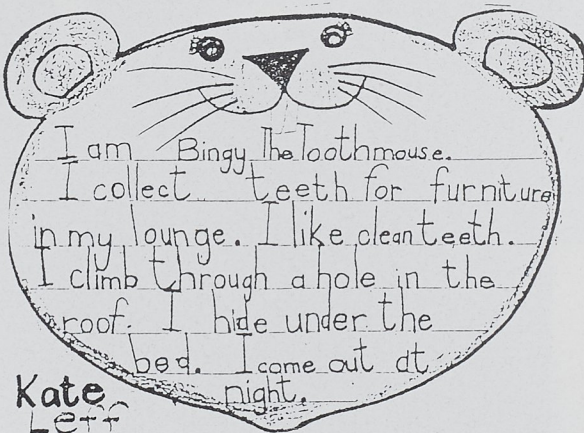 I am Bingy The Toothmouse.
I collect teeth for furniture
in my lounge. I like clean teeth.
I climb through a hole in the
roof. I hide under the
bed. I come out at
night.
Kate
Leff